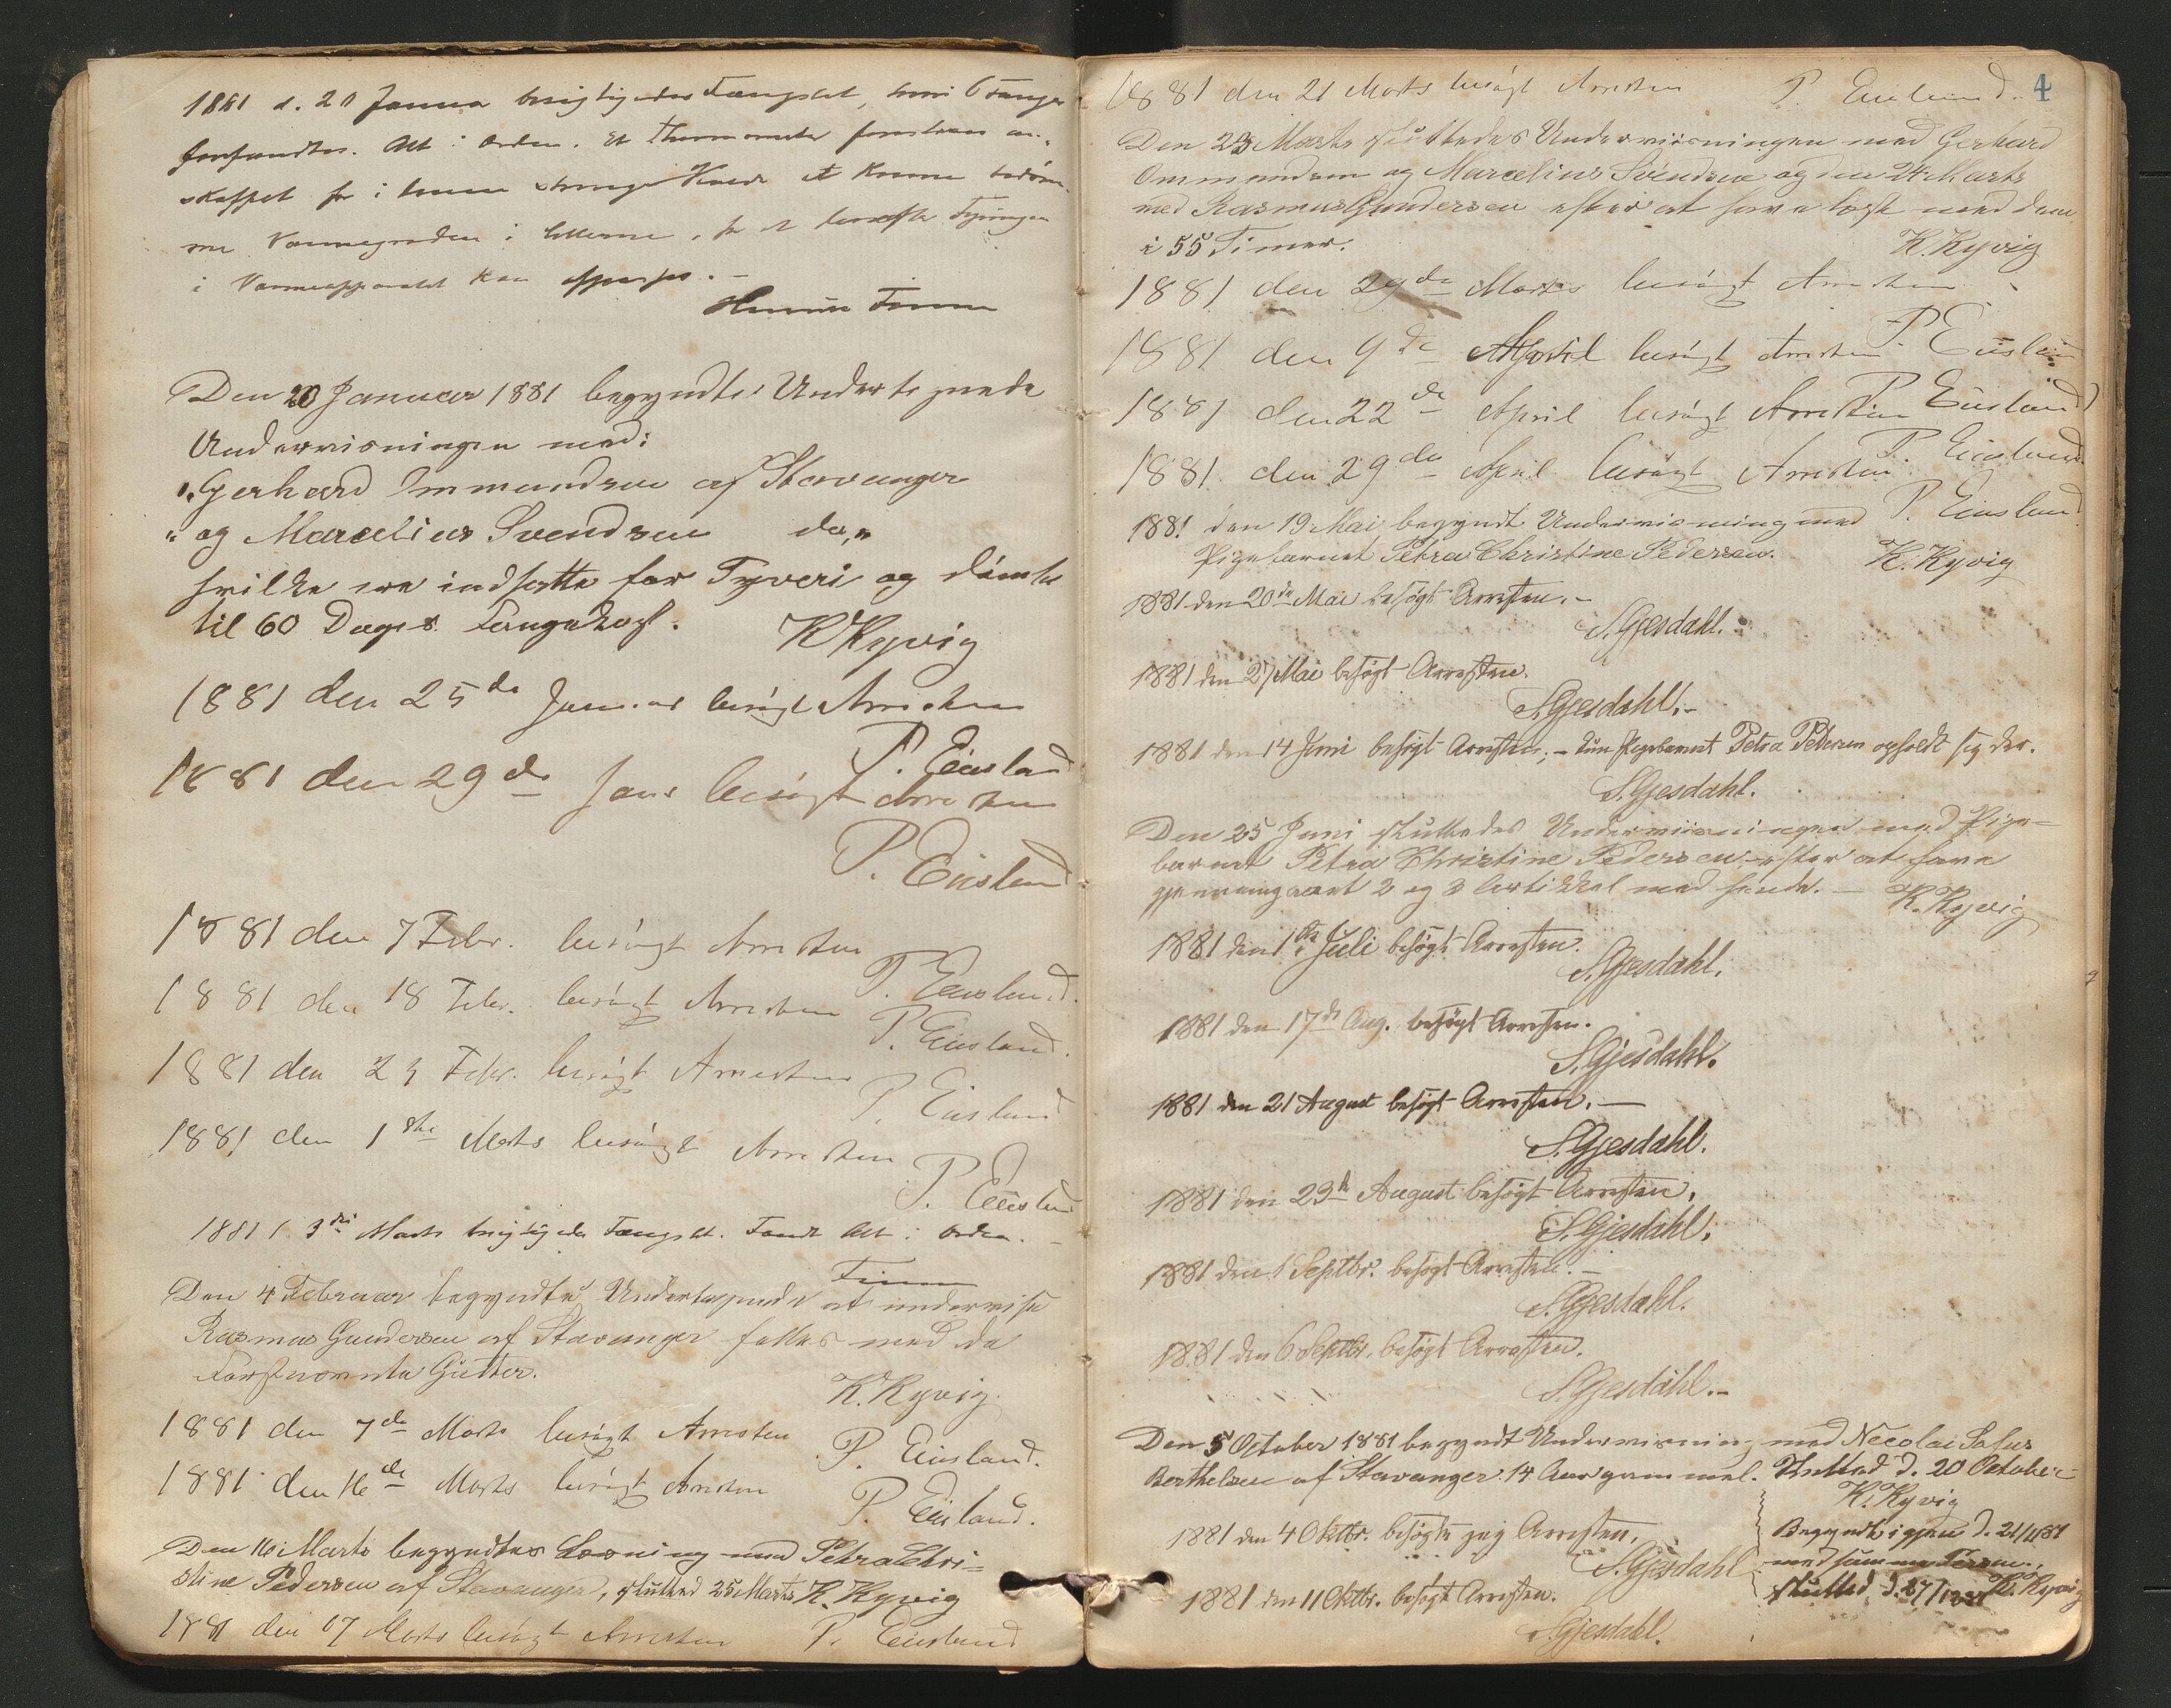 1881 d. 20 Januar besigtigedes Fængslet, hvori 6 Fanger
forefandtes. Alt i Orden. Et Thermometer
skaffet for i denne strenge Kulde at kunne
Varmegraden i Cellerne, for at derefter Fyringen
i Varmeapparatet kan
Den 20 Januar 1881 begyndte Undertegnede
Undervisningen med:
Gerhard Ommundsen af Stavanger
" og Marcelius Svendsen do, "
hvilke ere indsatte for Tyveri og dömte
til 60 Dages Fangekost. K Kyvig
1881 den 25de Januar besögt Arresten
P. Eiesland
1881 den 29de Janr besögt Arresten
P. Eiesland
1881 den 7 Febr. besögt Arresten
P. Eiesland.
1881 den 18 Febr. besögt Arresten
P. Eiesland.
1881 den 23 Febr. besögt Arresten
P. Eiesland
1881 den 1ste Marts besögt Arresten
P. Eiesland
1881 3die Marts besigtigede Fængslet. Fandt Alt i Orden.
Den 4 Februar begyndte Undertegnede at undervise
Rasmus Gundersen af Stavanger fælles med de
førstnævnte Gutter.
K. Kyvig.
1881 den 7de Marts besögt Arresten
P. Eiesland.
1881 den 16de Marts besögt Arresten
P. Eiesland.
Den 16 Marts begyndtes Læsning med Petra Chri-
stine Pedersen af Stavanger, slutted 25 Marts K. Kyvig
1881 den 17 Marts besögt Arresten P. Eiesland
1881 den 21 Marts besögt Arresten P. Eiesland. 4
Den 23 Marts sluttedes Underviisningen med Gerhard
Ommundsen og Marcelius Svendsen og den 24 Marts
med Rasmus Gundersen efter at have læst med dem
i 55 Timer. K. Kyvig
1881 den 29de Marts besögt Arresten
P. Eiesland
1881 den 9de April besögt Arresten
P. Eiesland
1881 den 22de April besögt Arresten
P. Eiesland
1881 den 29de April besögt Arresten
P. Eiesland
1881 den 19 Mai begyndt Undervisning med
Pigebarnet Petra Christine Pedersen. K. Kyvig
1881 den 20de Mai besögt Arresten.-
S. Gjesdahl.
1881 den 27 Mai besögt Arresten.
S. Gjesdahl.-
1881 den 14 Juni besögt Arresten; - kun Pigebarnet Petra Pedersen opholdt sig der.
S. Gjesdahl.
Den 25 Juni sluttedes Underviisningen med Pige-
barnet Petra Christine Pedersen efter at have
gjennemgaaet 2 og 3 Artikkel med hende. - K. Kyvig
1881 den 1ste Juli besögt Arresten.
S. Gjesdahl.
1881 den 17de Aug. besögt Arresten.
S. Gjesdahl.
1881 den 21 August besögt Arresten. -
S. Gjesdahl.
1881 den 29de August besögt Arresten.
S. Gjesdahl.
1881 den 1 Septbr. besögt Arresten. -
S. Gjesdahl.
1881 den 6 Septbr. besögt Arresten.
S. Gjesdahl.-
Den 5 October 1881 begyndt Undervisning med Necolai
Berthelsen af Stavanger. 14 Aar gammel. Slutted d. 20 October
K. Kyvig
1881 den 4 Oktbr. besögte jeg Arresten.
S. Gjesdahl
1881 den 11 Oktbr. besögt Arresten.
S. Gjesdahl.
Begyndt igjen d. 21/11 81
med samme Person.
slutted d. 27/12 81 K. Kyvig